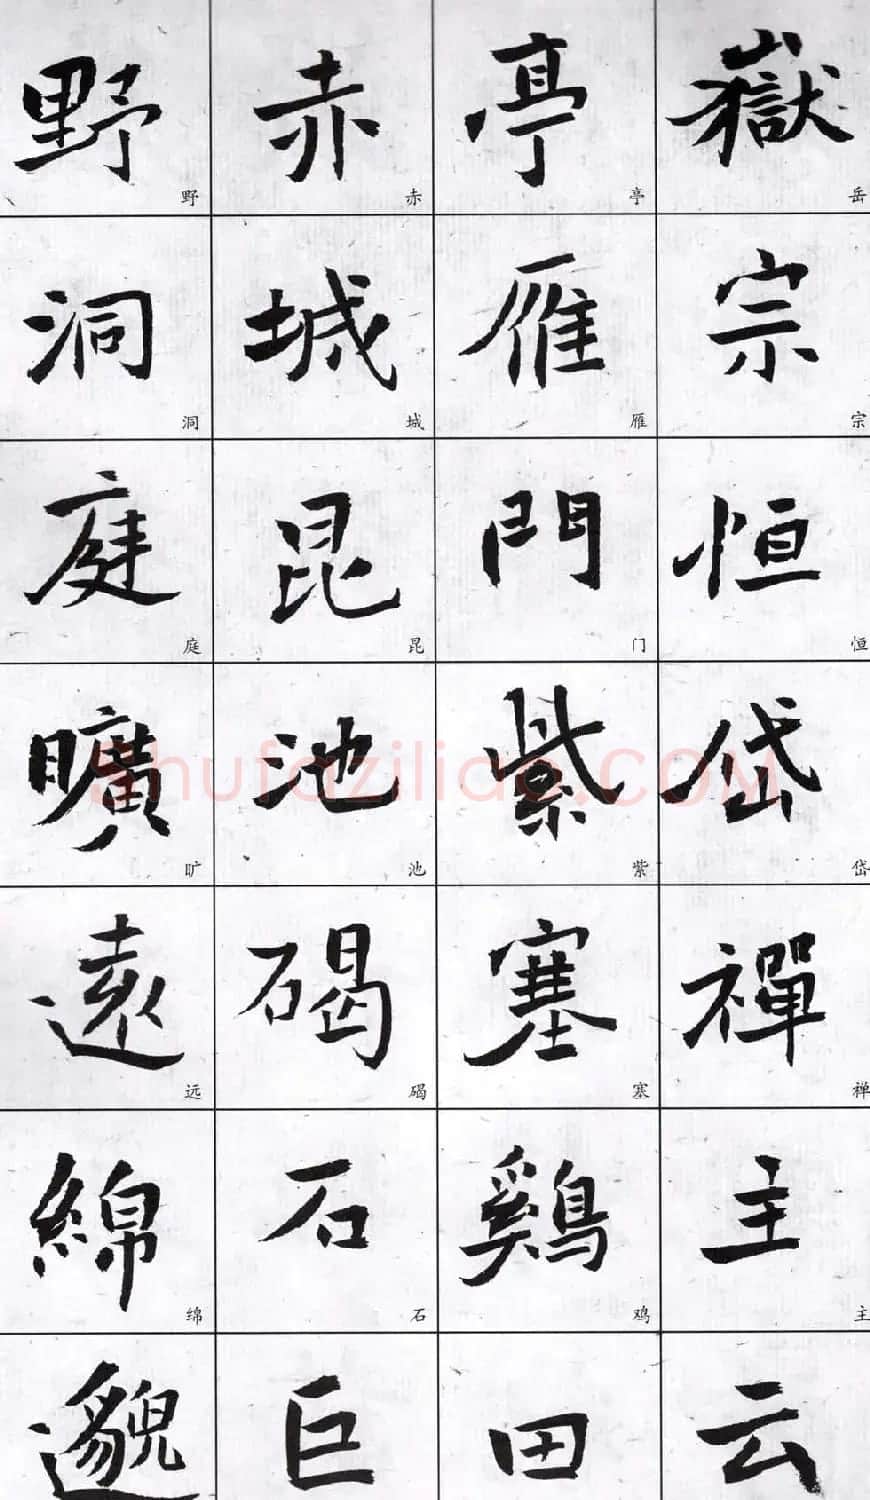 嶽宗恒岱禪主云
岳宗恒岱禅主
亭雁門紫塞鷄田
亭雁门紫塞鸡
赤城昆池碣石巨
赤城昆池碣石
野洞庭曠遠綿邈
野洞庭旷远绵
Shufaziliao.COM